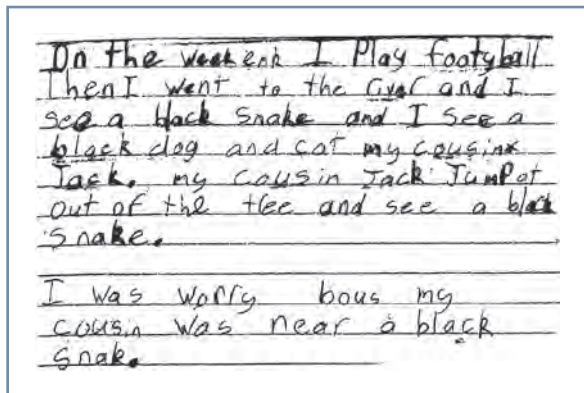 On the weekenk I Play footyball
Then I went to the river and I
see a black snake and I see a
black dog and cat my cousin
Jack. my cousin Jack Jumpot
out of the tree and see a black
snake.
I was worry bous my
cousin was near a black
snak.